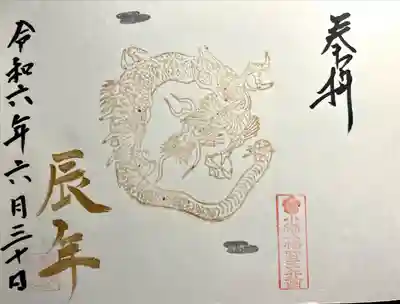 奉拝
辰年
令和六年六月三十日